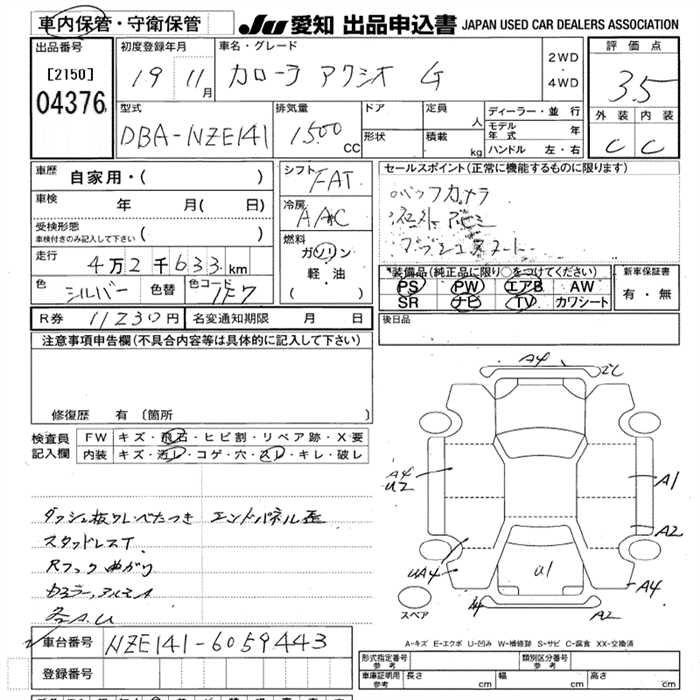 車内保管・守衛保管
JU 愛知 出品申込書 JAPAN USED CAR DEALERS ASSOCIATION
出品番号
[2150]
04376
初度登録年月
19 11月
車名・グレード
カローラ アクシオ G
2WD
・
4WD
評価点
3.5
外装 内装
C C
型式
DBA-NZE141
排気量
1500cc
ドア
形状
定員 人
積載 kg
ディーラー・並行
モデル年式 年
ハンドル 左・右
車歴 自家用・( )
車検 年 月( 日)
受検形態
車検付きのみ記入して下さい ( )
走行 4万2千633km
色 シルバー 色替 色コード 1F7
シフト FAT
冷房 AAC
燃料
ガソリン
軽・油
( )
セールスポイント(正常に機能するものに限ります)
バックカメラ
プッシュスタート
装備品(純正品に限り○をつけてください)
PS PW エアB AW
SR ナビ TV カワシート
新車保証書
有・無
R券 11230円 名変通知期限 月 日
後日品
注意事項申告欄(不具合内容等は具体的に記入して下さい)
修復歴 有〔箇所 〕
検査員記入欄
FW キズ・飛石・ヒビ割・リペア跡・X要
内装 キズ・汚レ・コゲ・穴・スレ・キレ・破レ
ダッシュ板ワレベたつき エンドパネル歪
スタッドレスT
Rフック曲がり
各A.U
A4
2C
A4
U2
A1
A2
UA4
U1
A4
A2
スペア
A-キズ E-エクボ U-凹み W-補修跡 S-サビ C-腐食 XX-交換済
車台番号 NZE141-6059443
登録番号
形式指定番号
参考
類別区分番号
参考
車庫証明用
参考
長さ cm 幅 cm 高さ cm